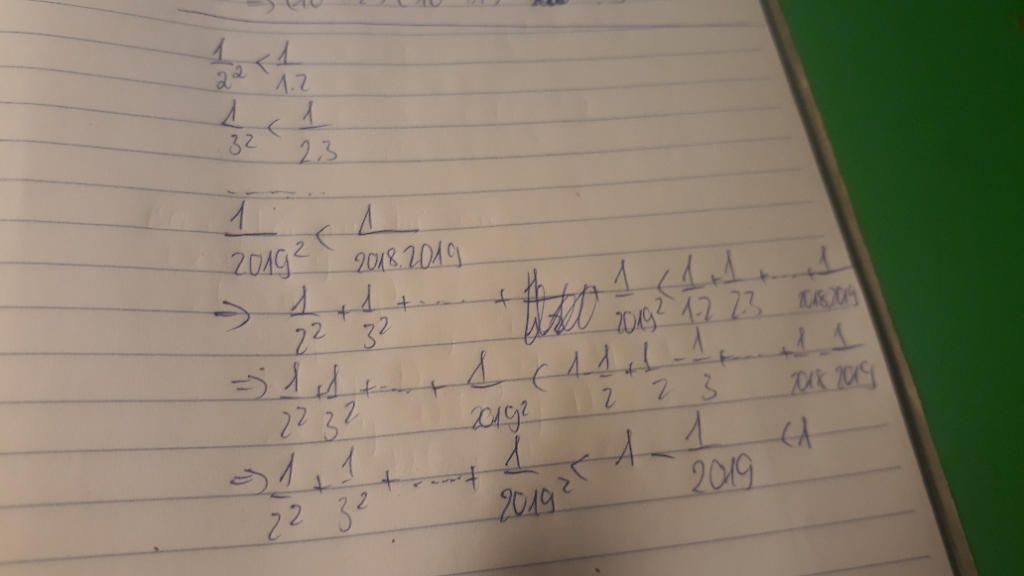 1/2² < 1/1.2
1/3² < 1/2.3
..........
1/2019² < 1/2018.2019
=> 1/2² + 1/3² + ...... + 1/2019² < 1/1.2 + 1/2.3 + ..... + 1/2018.2019
=> 1/2² + 1/3² + ..... + 1/2019² < 1 - 1/2 + 1/2 - 1/3 + ..... + 1/2018 - 1/2019
=> 1/2² + 1/3² + ..... + 1/2019² < 1 - 1/2019 < 1